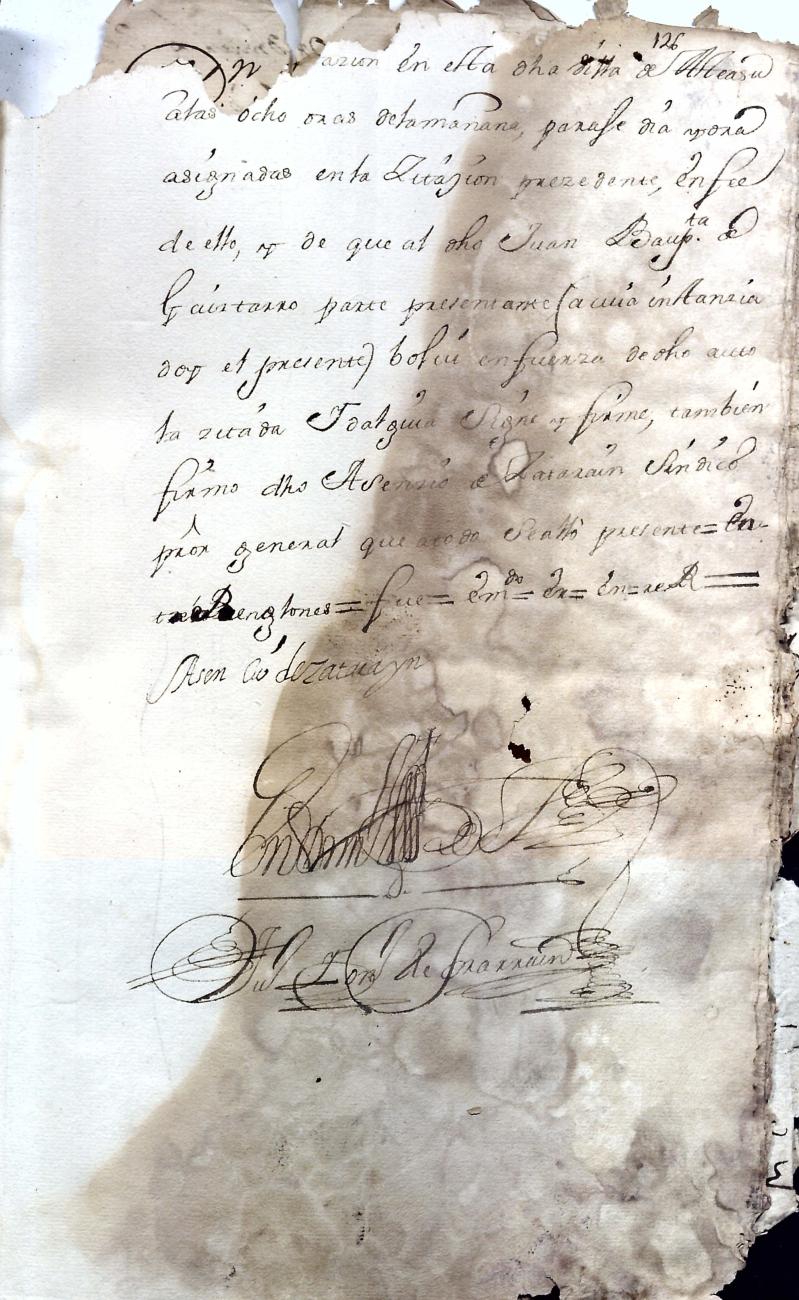 126
arzion en esta dha villa de Alteasu
alas ocho oras delamañana, paraese dia y ora
asignadas en la Zitazion prezedente, en fee
de ello, y de que al dho Juan Baupta de
Gaiztarro parte presentante (acuia instanzia
doy el presente) bolui en fuerza de dho auto
la zitada Idalguia Signe y firme, tambien
firmo dho Asenzio de Zatarain Sindico
pror general que atodo se allo presente = En
tre Renglones = fue = emdo = en = en = re R =
Asen cio de Zatarayn
En testimo de
de Ynarrain